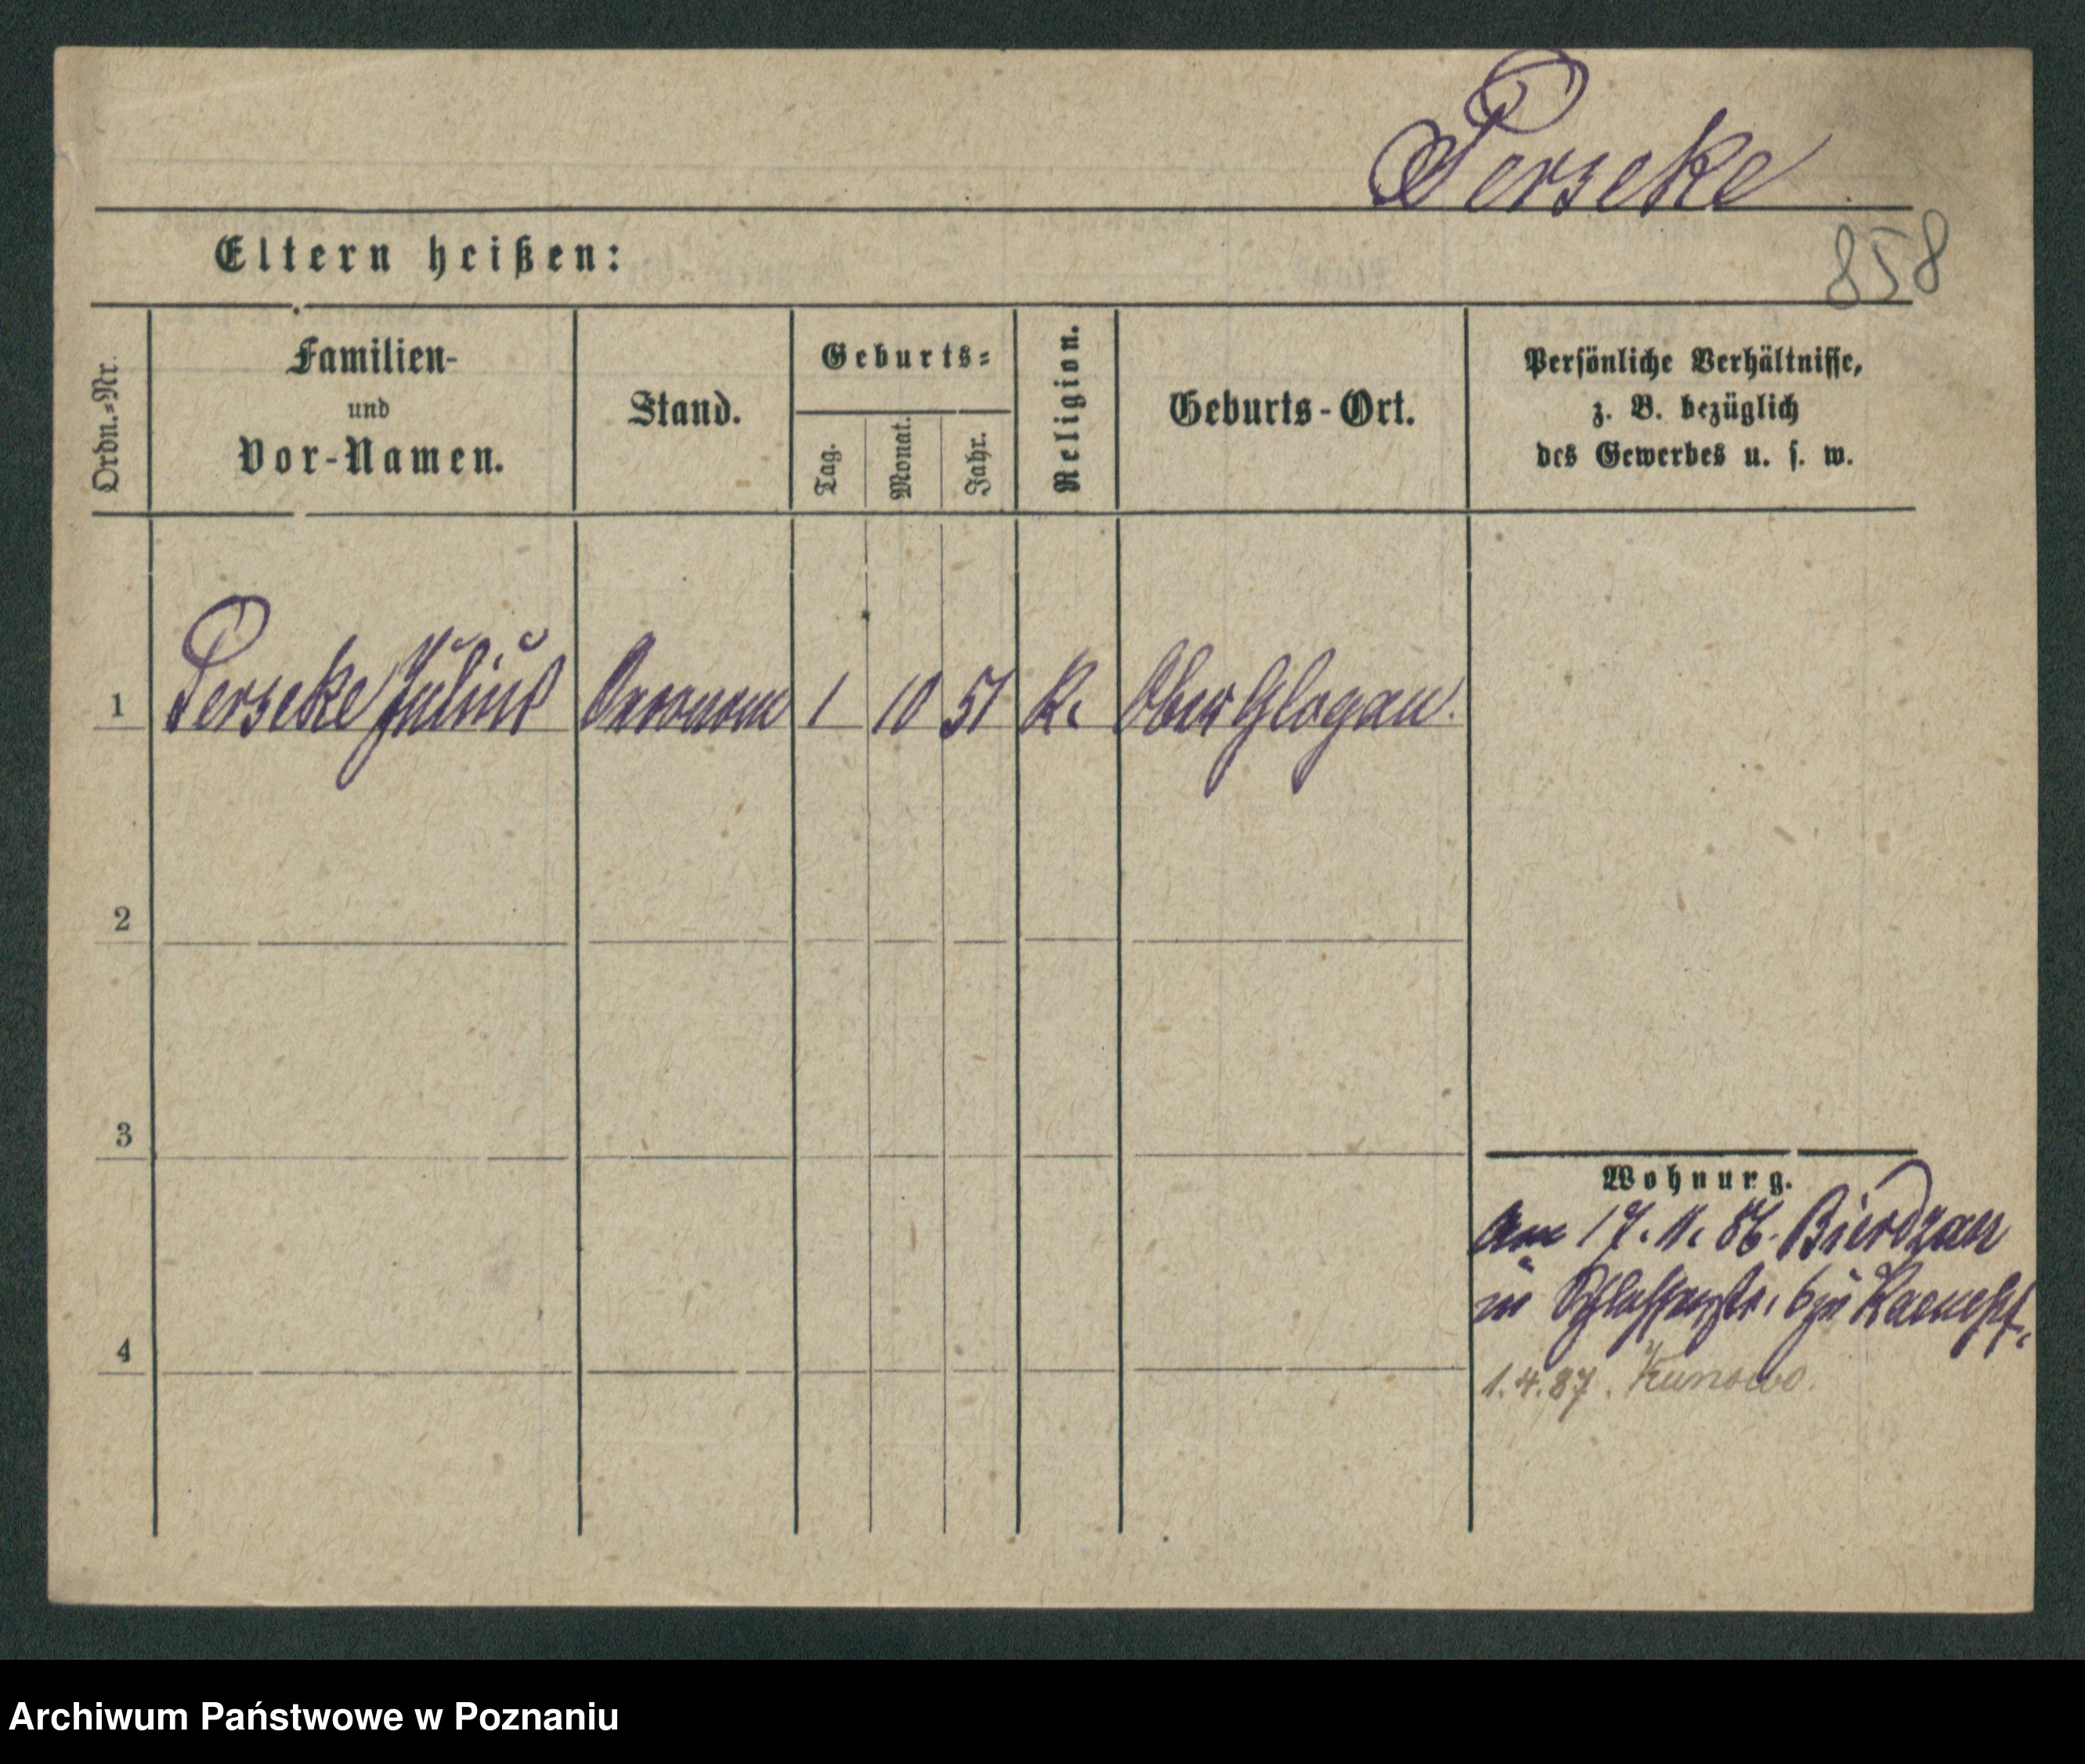 Perseke
Eltern heißen:
858
Ordn.=Nr.
Familien-
und
Vor-Namen.
Stand.
Geburts=
Tag.
Monat.
Jahr.
Religion.
Geburts-Ort.
Persönliche Verhältnisse,
z. B. bezüglich
des Gewerbes u. s. w.
1 Perseke Julius Oeconom 1 10 51 K. Ober Glogau.
2
3
4
Wohnung.
am 17. 11. 86. Bierdzan
in 6
1.4.87. Kunowo.
Archiwum Państwowe w Poznaniu